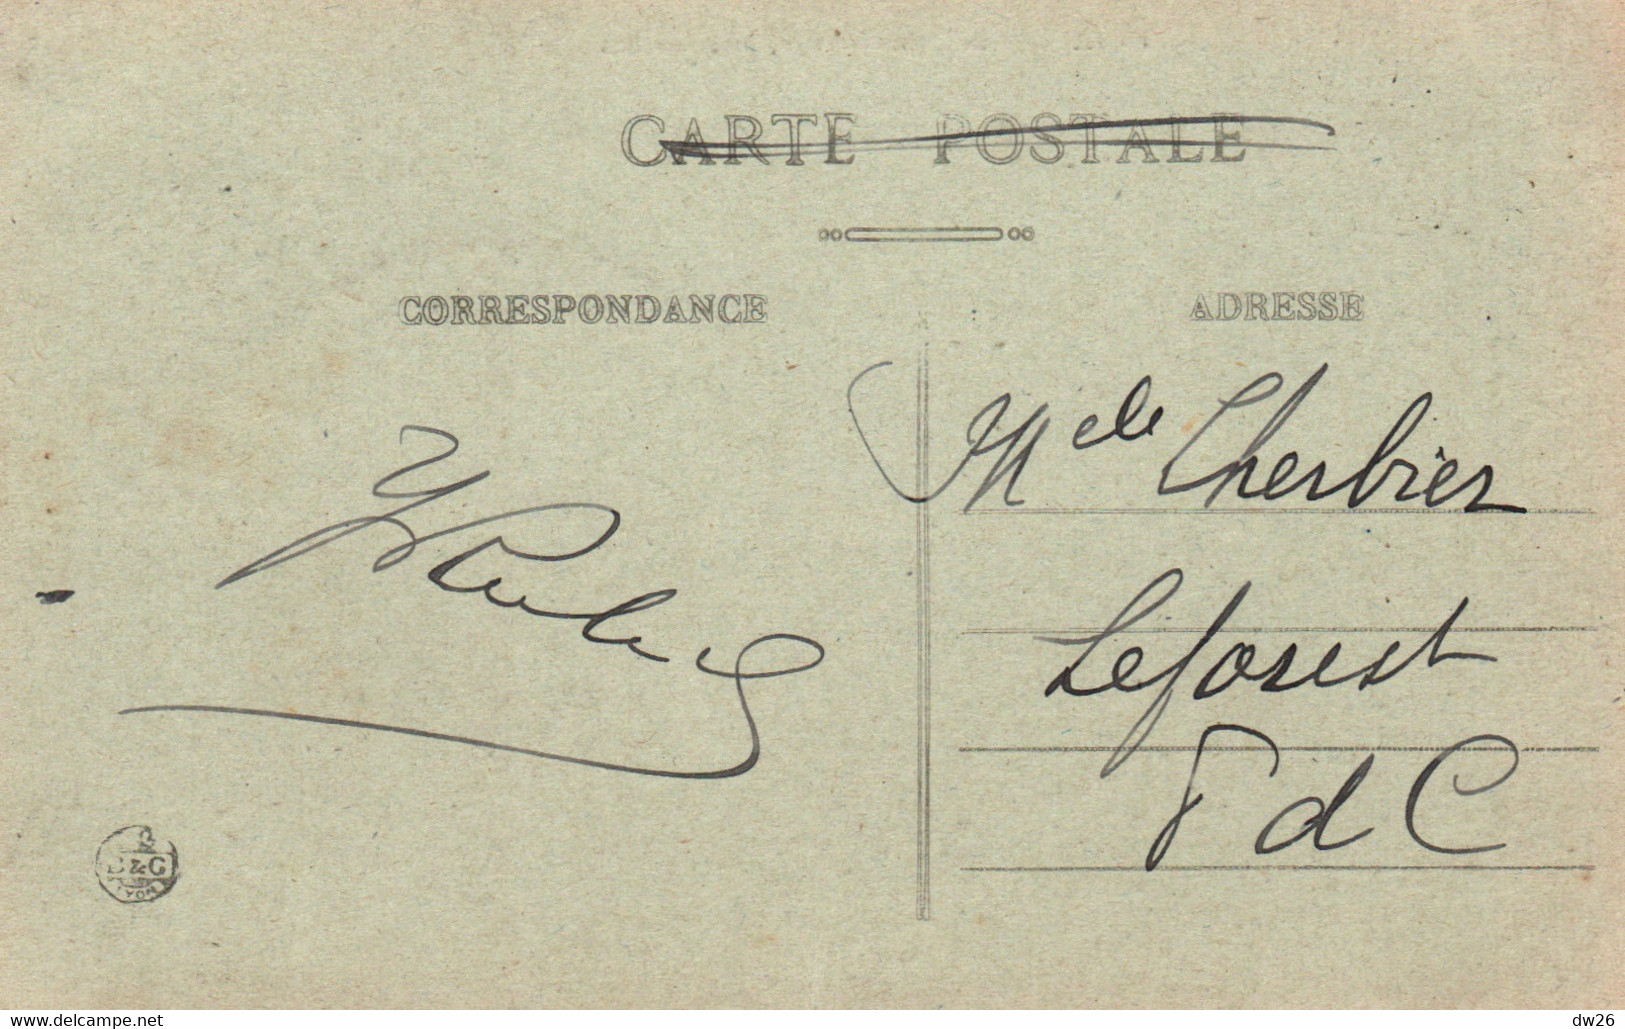 CARTE POSTALE
CORRESPONDANCE
ADRESSE
Melle Cherbier
Leforest
P d C
B & G
LYON
www.delcampe.net
dw26